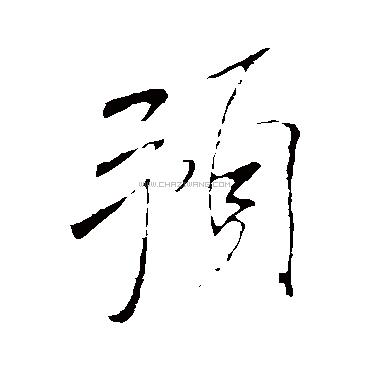 預
WWW.CHAZIWANG.COM